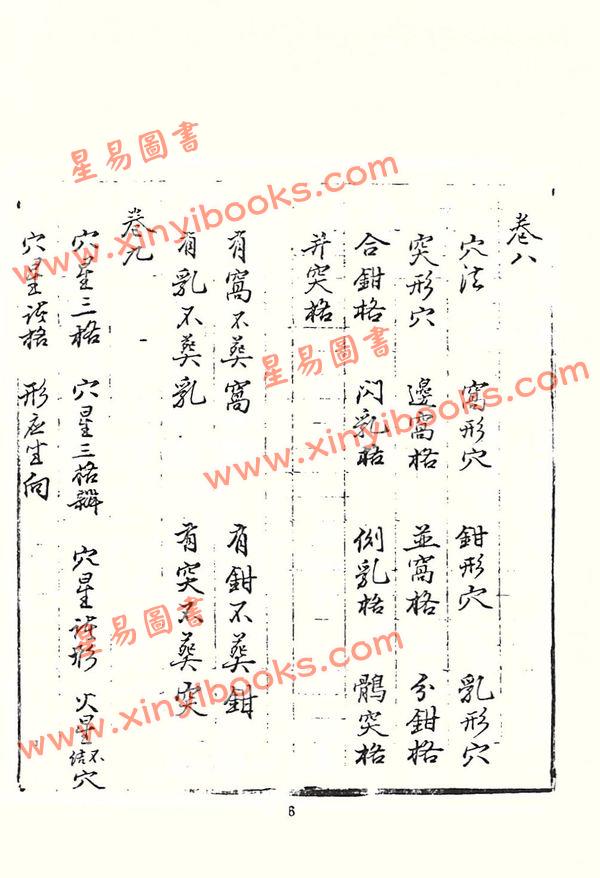 卷八
穴法 窩形穴 鉗形穴 乳形穴
突形穴 邊窩格 並窩格 分鉗格
合鉗格 閃乳格 側乳格 鶻突格
并突格
有窩不葬窩 有鉗不葬鉗
有乳不葬乳 有突不葬突
卷九
穴星三格 穴星三格辨 穴星 火星不結穴
穴星 格 形应生向
6
星易圖書
www.xinyibooks.com
星易圖書
www.xinyibooks.com
星易圖書
www.xinyibooks.com